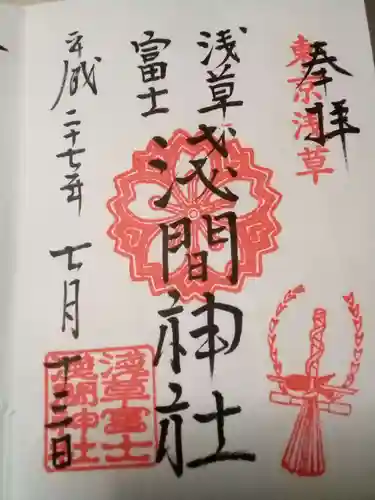 奉拝
東京浅草
浅草
富士
浅間神社
平成二十七年 七月 十三日
淺草富士
淺間神社